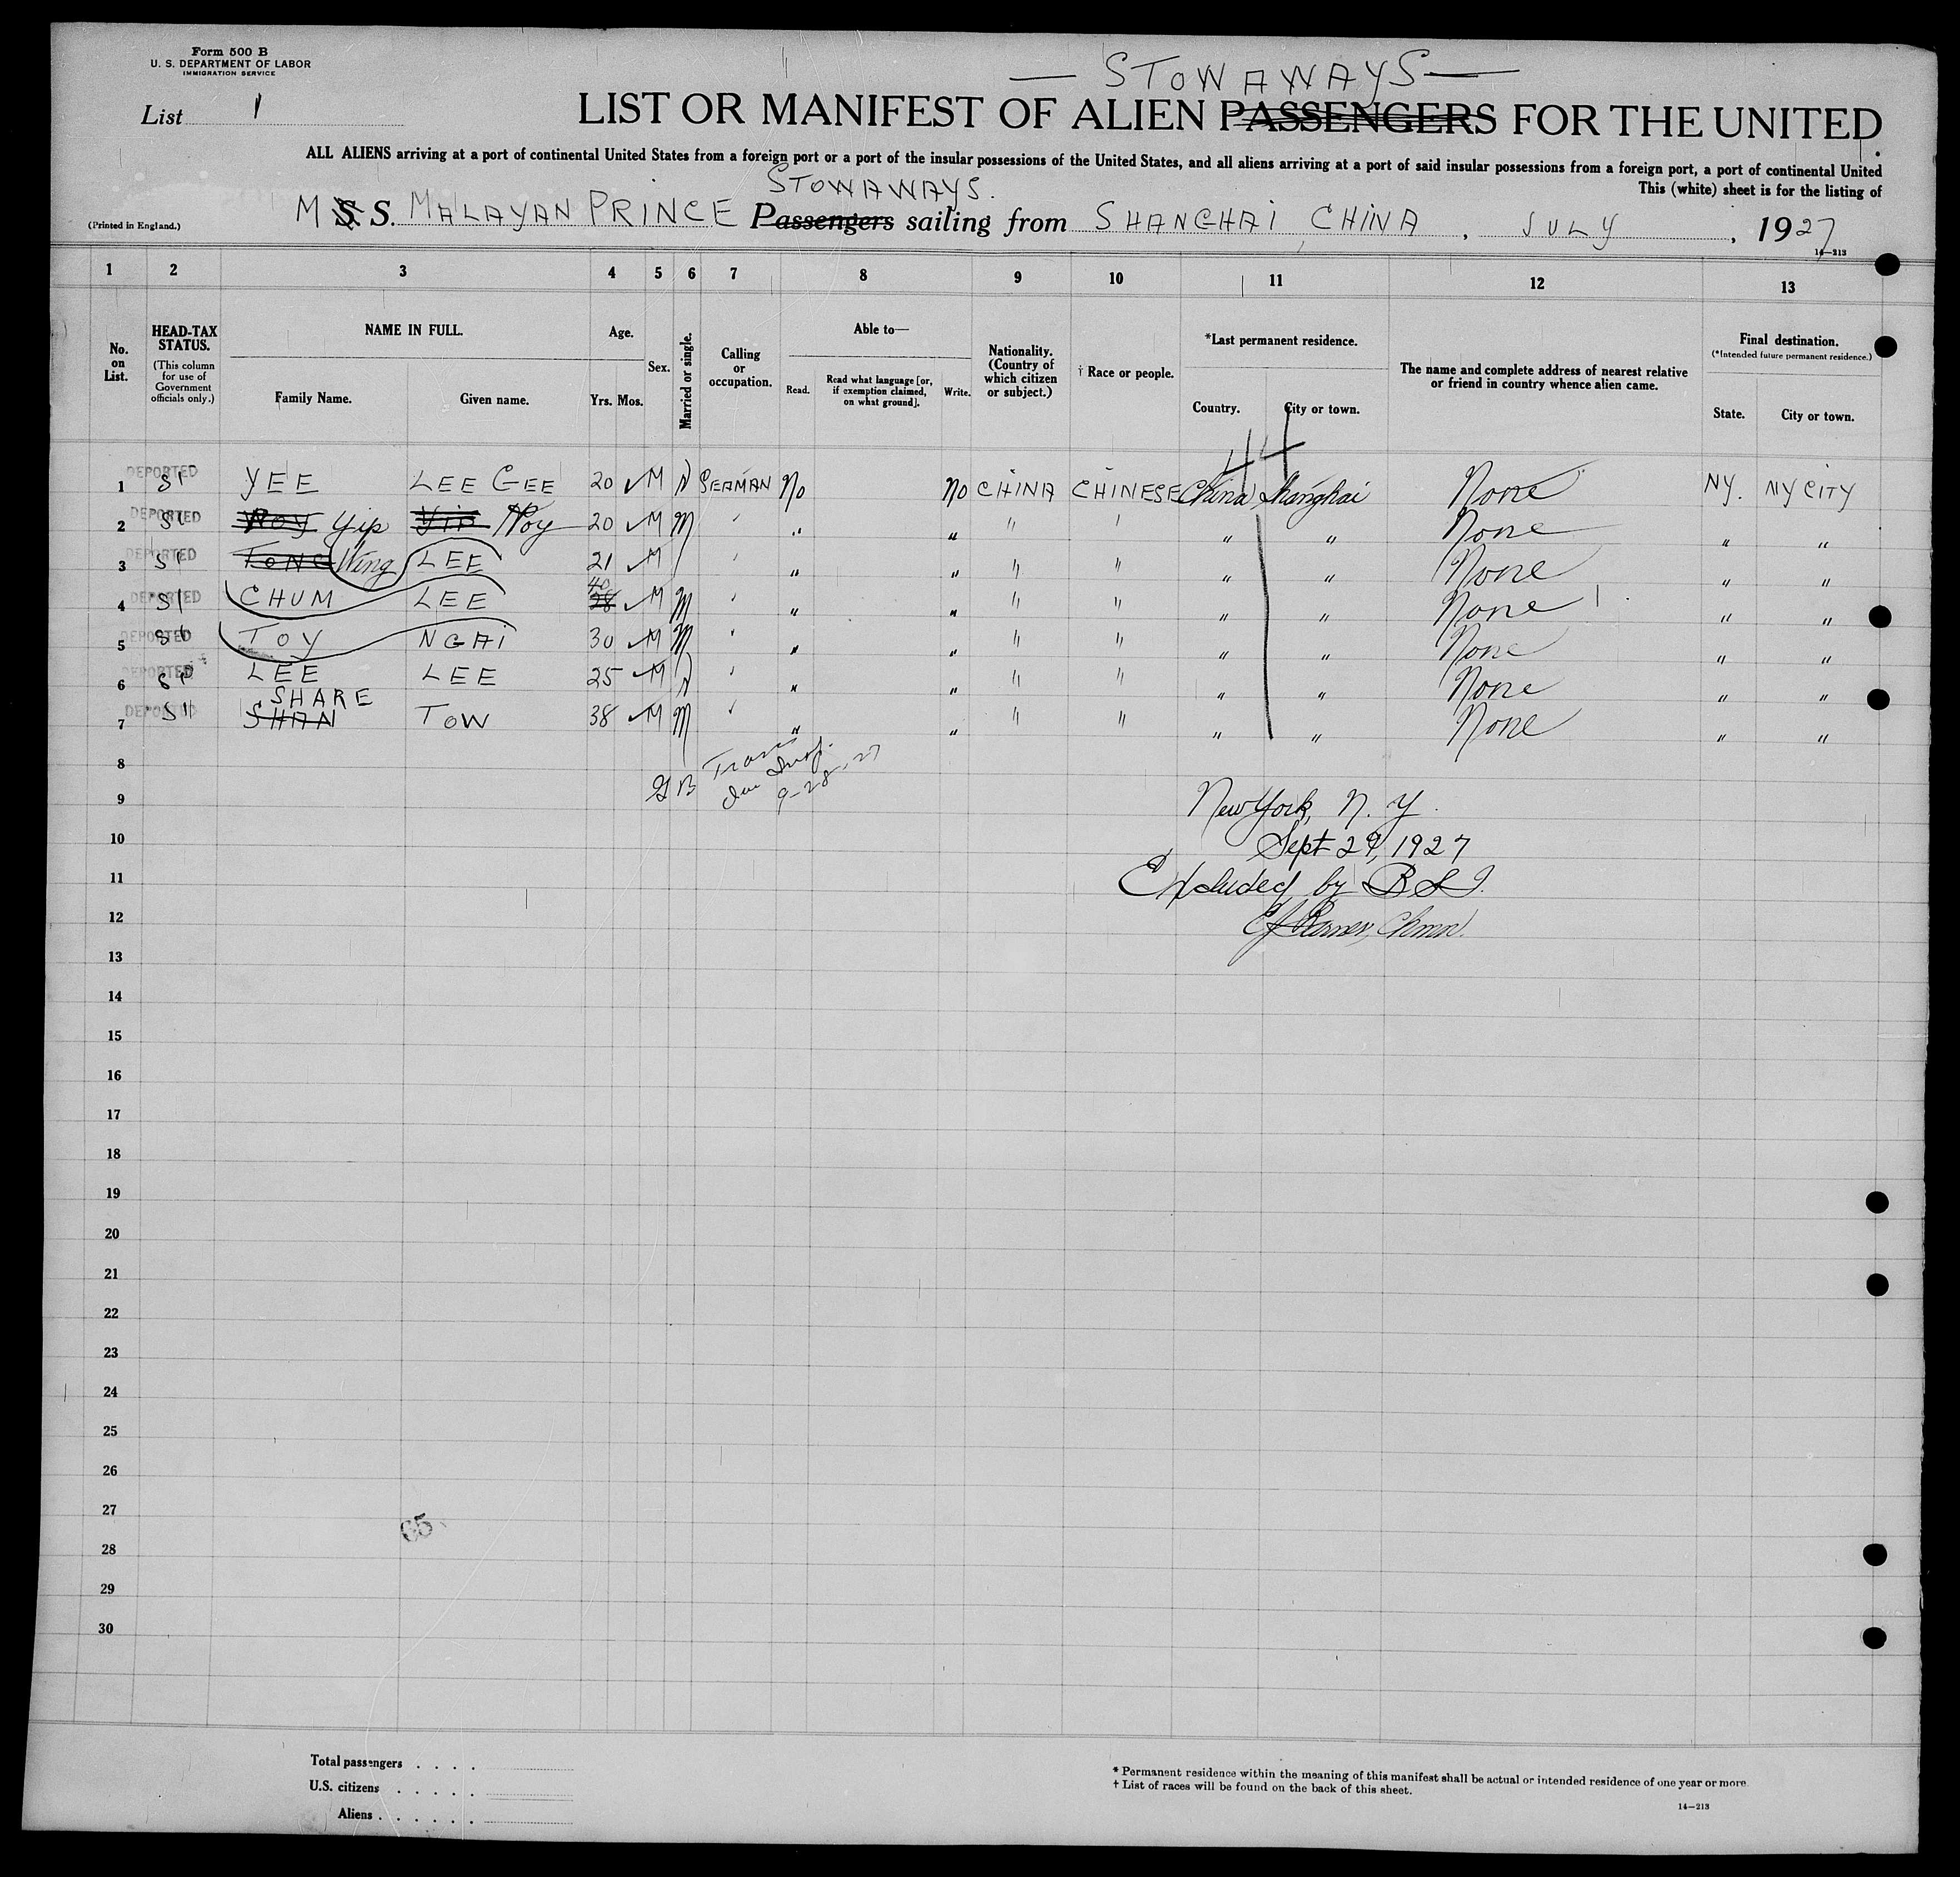 Form 500 B
U. S. DEPARTMENT OF LABOR
IMMIGRATION SERVICE
List 1
— STOWAWAYS —
LIST OR MANIFEST OF ALIEN PASSENGERS FOR THE UNITED
ALL ALIENS arriving at a port of continental United States from a foreign port or a port of the insular possessions of the United States, and all aliens arriving at a port of said insular possessions from a foreign port, a port of continental United
This (white) sheet is for the listing of
STOWAWAYS.
(Printed in England.) M S. S. MALAYAN PRINCE Passengers sailing from SHANGHAI, CHINA, JULY, 1927
14—213
1 2 3 4 5 6 7 8 9 10 11 12 13
No. on List.
HEAD-TAX STATUS.
(This column for use of Government officials only.)
NAME IN FULL.
Family Name. Given name.
Age.
Yrs. Mos.
Sex.
Married or single.
Calling or occupation.
Able to—
Read. Read what language [or, if exemption claimed, on what ground]. Write.
Nationality. (Country of which citizen or subject.)
† Race or people.
*Last permanent residence.
Country. City or town.
The name and complete address of nearest relative or friend in country whence alien came.
Final destination.
(*Intended future permanent residence.)
State. City or town.
44
1 DEPORTED SI YEE LEE GEE 20 M S SEAMAN No No CHINA CHINESE China Shanghai None NY. NY CITY
2 DEPORTED SI Yip Hoy 20 M M " " " " " " " None " "
3 DEPORTED SI TONG Wing LEE 21 M " " " " " " " None " "
4 DEPORTED SI CHUM LEE 40 38 M M " " " " " " " None " "
5 DEPORTED SI TOY NGAI 30 M M " " " " " " " None " "
6 DEPORTED SI LEE LEE 25 M S " " " " " " " None " "
SHARE
7 DEPORTED SI SHAN TOW 38 M M " " " " " " " None " "
8
9
10
11
12
13
14
15
16
17
18
19
20
21
22
23
24
25
26
27
28
29
30
9-28-27
New York, N. Y.
Sept 29, 1927
Excluded by B S I.
Chmn.
65
Total passengers . . . .
U.S. citizens . . . . .
Aliens . . . . . .
* Permanent residence within the meaning of this manifest shall be actual or intended residence of one year or more.
† List of races will be found on the back of this sheet.
14—213